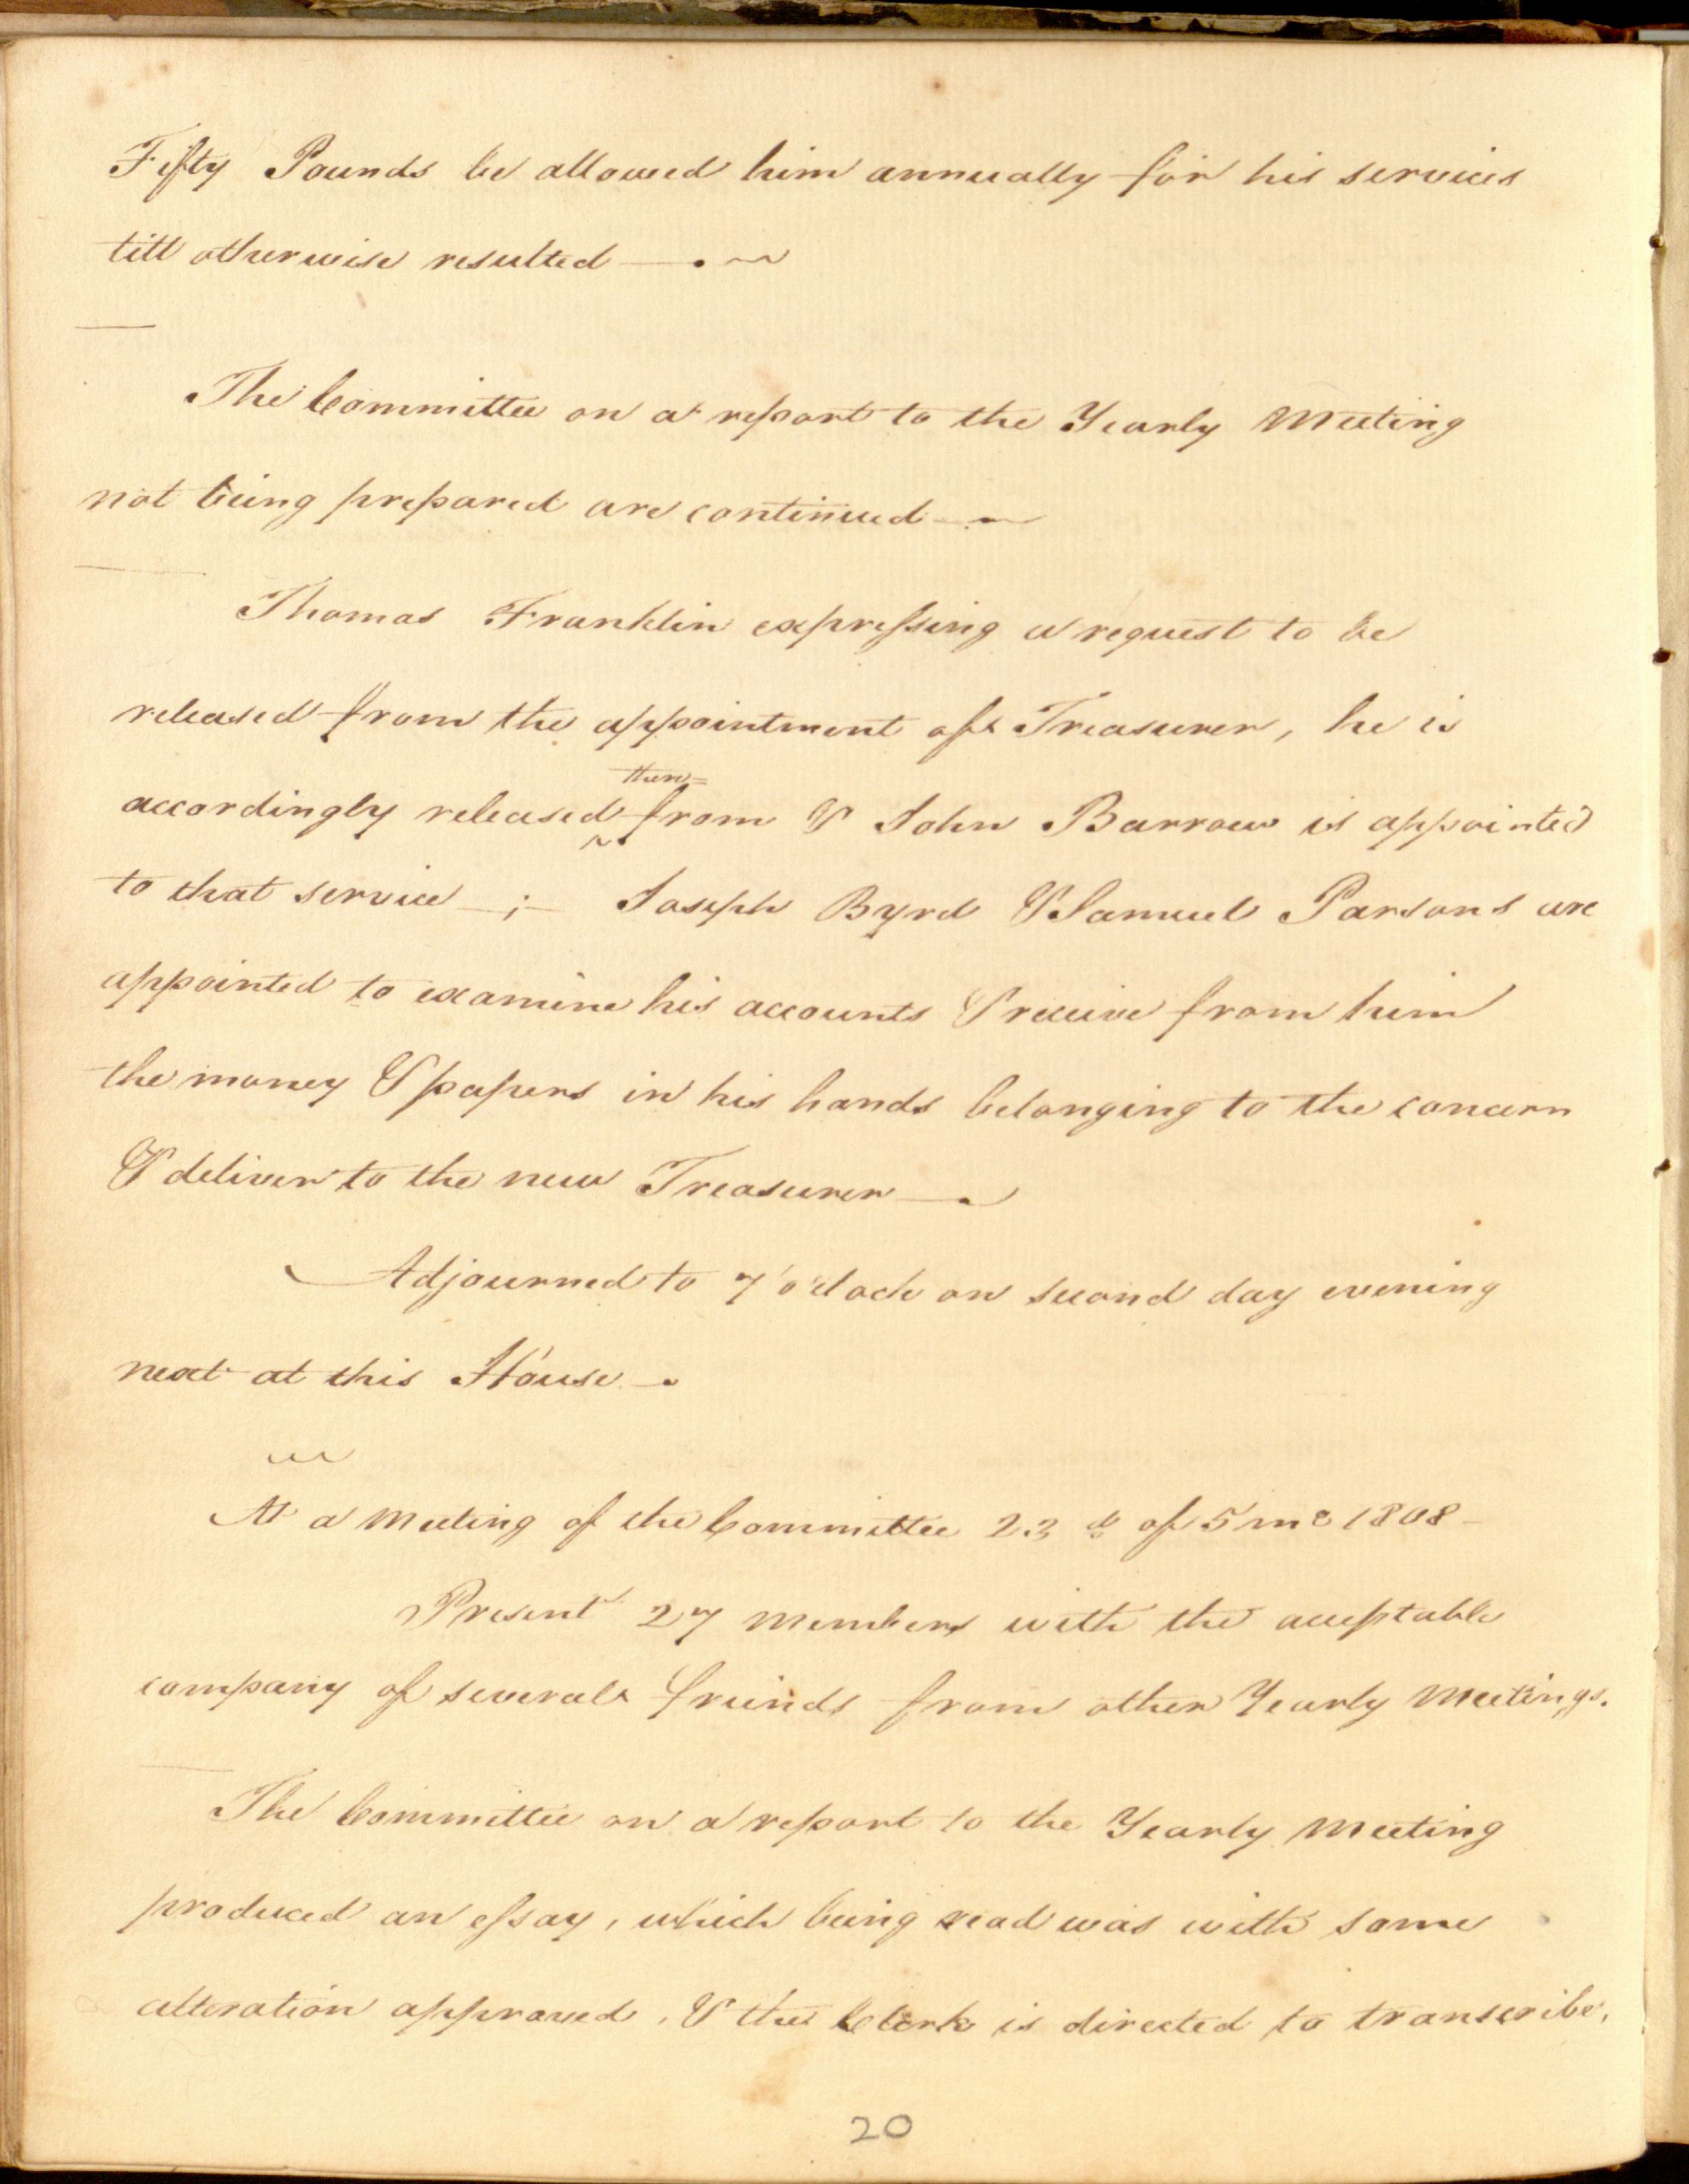 Fifty Pounds be allowed him annually for his services
till otherwise resulted —.~
The Committee on a report to the Yearly Meeting
not being prepared are continued —
Thomas Franklin expressing a request to be
released from the appointment of Treasurer, he is
there=
accordingly released ^ from & John Barrow is appointed
to that service —;— Joseph Byrd & Samuel Parsons are
appointed to examine his accounts & receive from him
the money & papers in his hands belonging to the concern
& deliver to the new Treasurer —.
Adjourned to 7 o'clock on second day evening
next at this House —.
At a Meeting of the Committee 23d of 5 mo 1808 —
Present 27 Members with the acceptable
company of several freinds from other Yearly Meetings.
The Committee on a report to the Yearly Meeting
produced an essay, which being read was with some
alteration approved, & the Clerk is directed to transcribe,
20